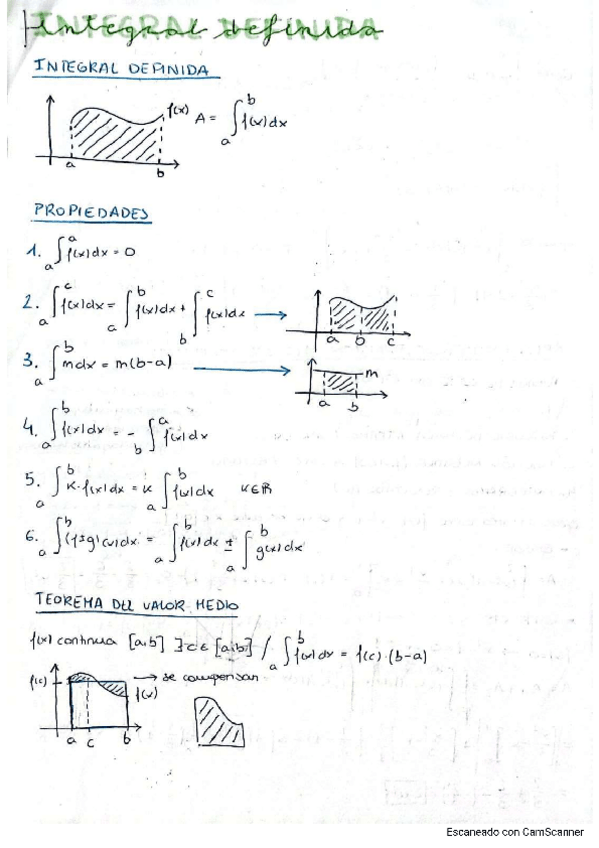 INTEGRAL DEFINIDA
Integral definida
INTEGRAL DEFINIDA
f(x) A = ∫_a^b f(x)dx
a b
PROPIEDADES
1. ∫_a^a f(x)dx = 0
2. ∫_a^c f(x)dx = ∫_a^b f(x)dx + ∫_b^c f(x)dx →
a b c
3. ∫_a^b m dx = m(b-a) → m
a b
4. ∫_a^b f(x)dx = - ∫_b^a f(x)dx
5. ∫_a^b K·f(x)dx = K ∫_a^b f(x)dx K∈ℝ
6. ∫_a^b (f±g)(x)dx = ∫_a^b f(x)dx ± ∫_a^b g(x)dx
TEOREMA DEL VALOR MEDIO
f(x) continua [a,b] ∃c∈[a,b] / ∫_a^b f(x)dx = f(c)·(b-a)
f(c) → se compensan
f(x)
a c b
Escaneado con CamScanner